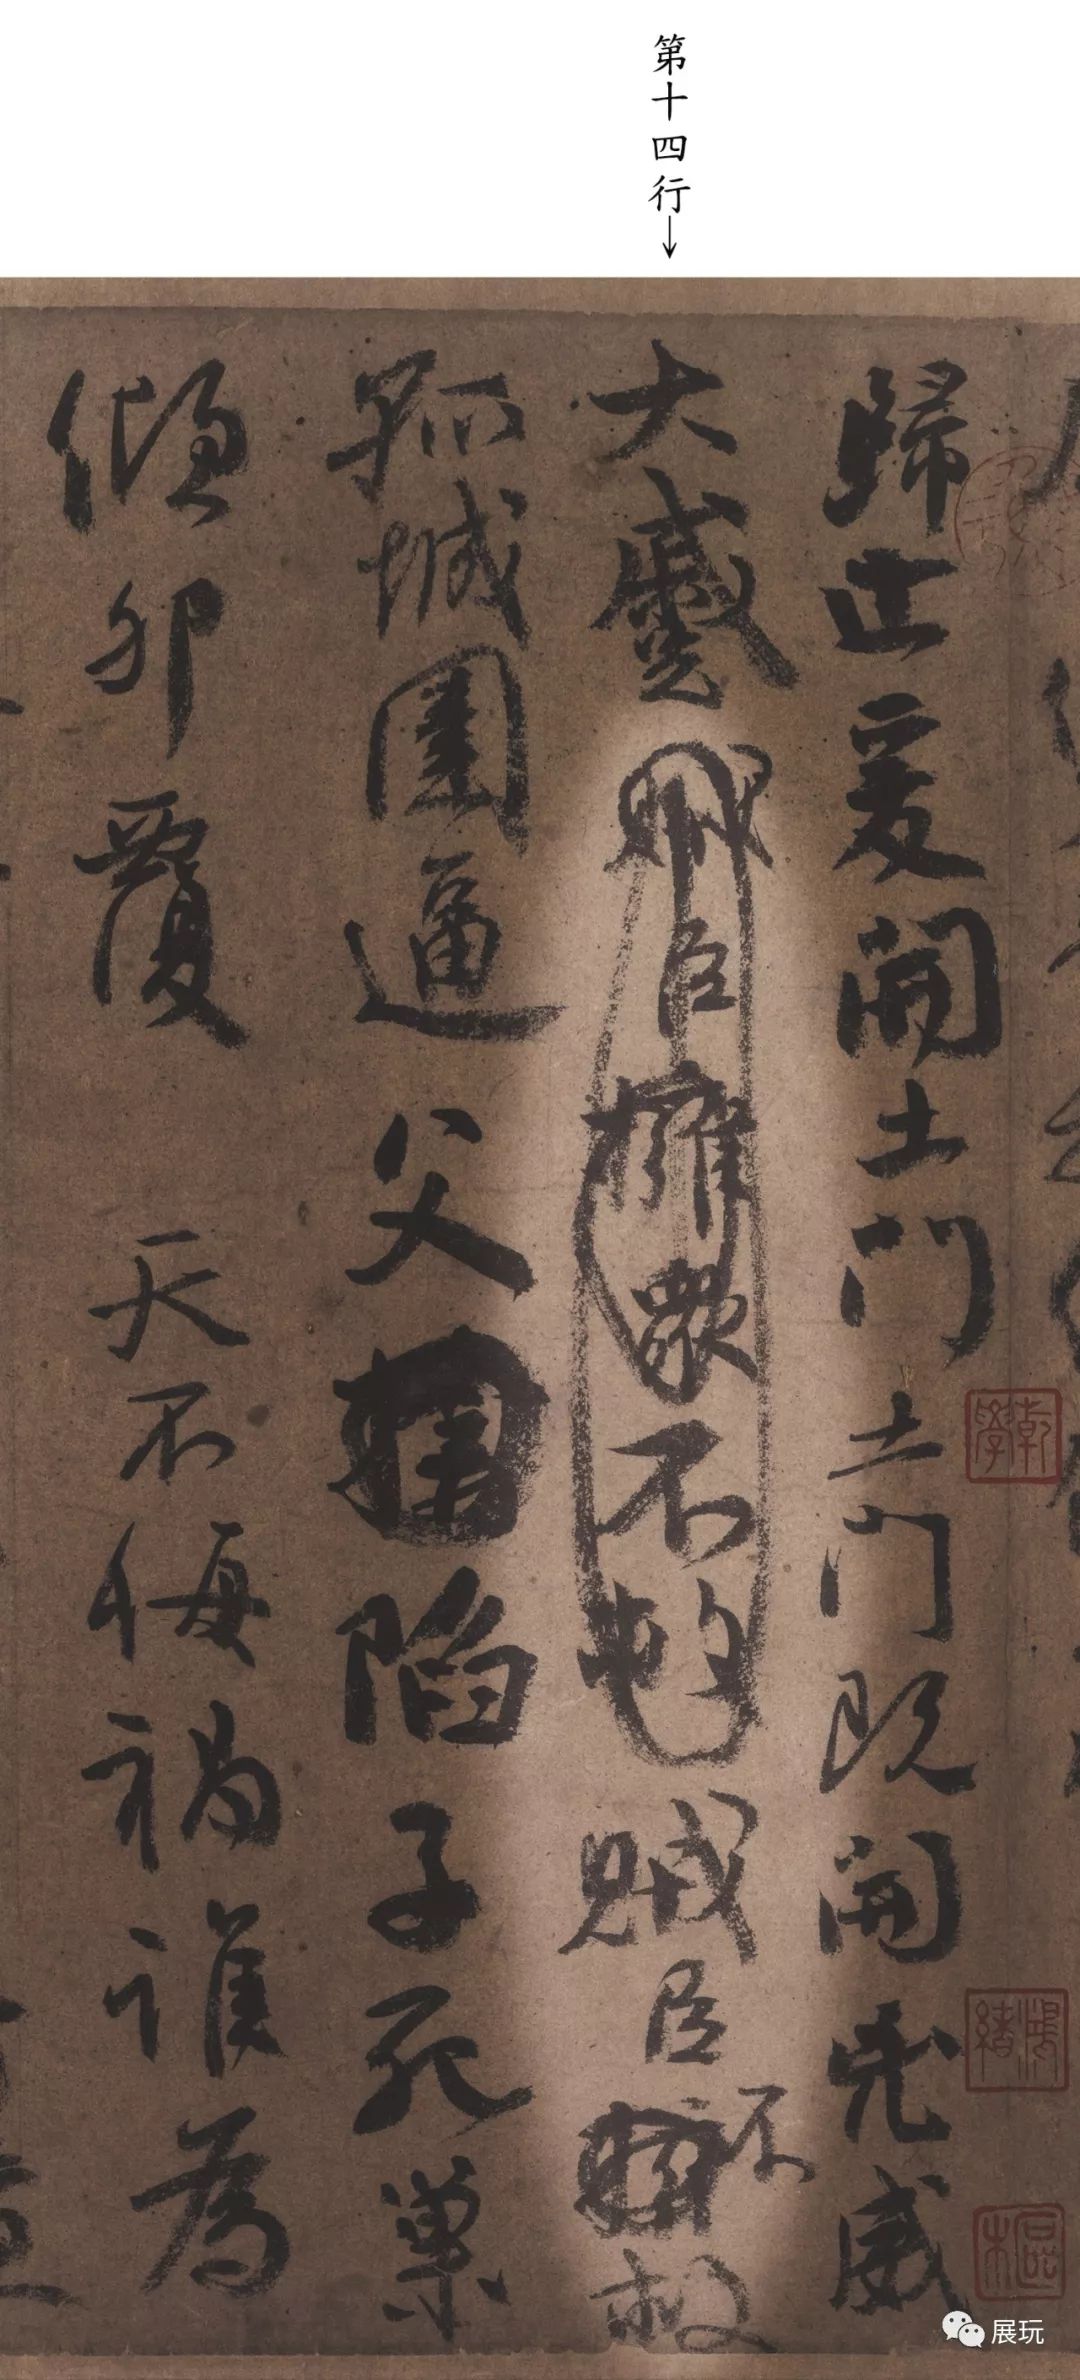 第十四行↓
歸止爰開土門土門既開兇威
大蹙賊臣擁眾不救賊臣不救
孤城圍逼父陷子死巢
傾卵覆天不悔禍誰為
乾學
樞
展玩